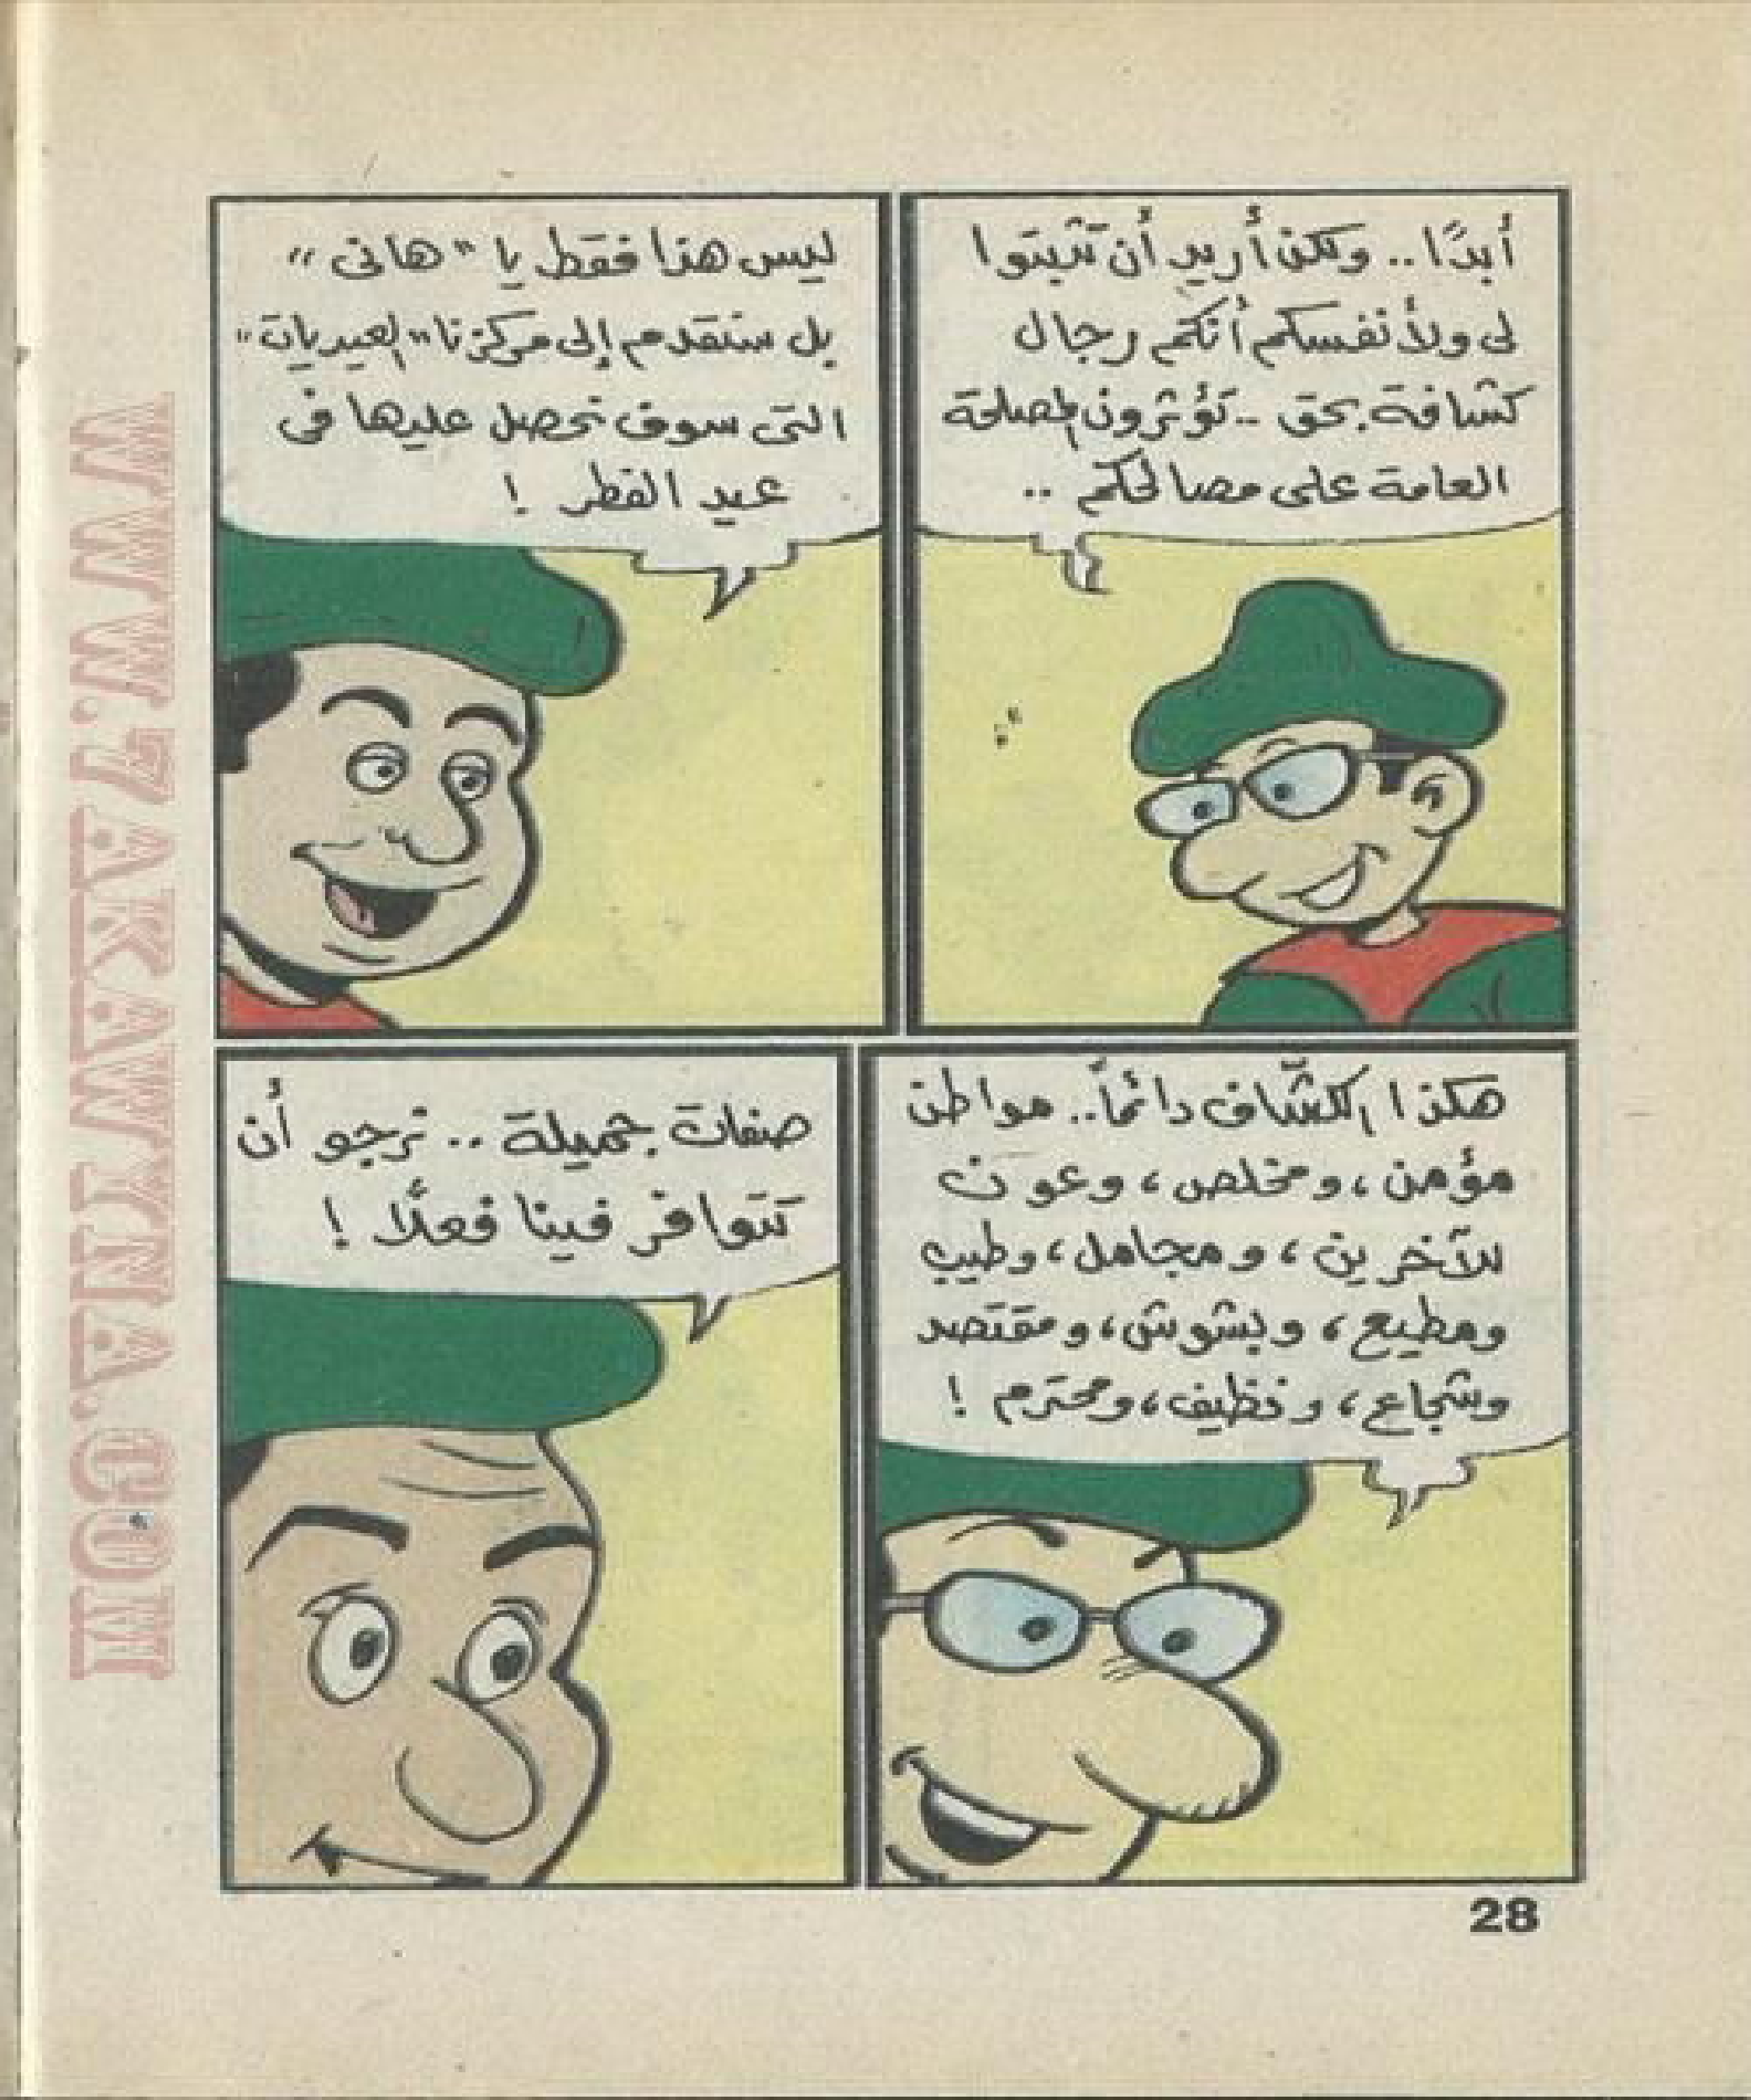 أبدًا.. ولكن أريد أن تثبتوا
لى ولأنفسكم أنكم رجال
كشافة بحق .. تؤثرون المصلحة
العامة على مصالحكم ..
ليس هذا فقط يا "هانى"
بل سنقدم إلى مركزنا "العيديات"
التى سوف نحصل عليها فى
عيد الفطر !
هكذا الكشّاف دائمًا.. مواطن
مؤمن، ومخلص، وعون
للآخرين، ومجامل، وطيب
ومطيع، وبشوش، ومقتصد
وشجاع، ونظيف، ومحترم !
صفات جميلة .. نرجو أن
تتوافر فينا فعلًا !
28
WWW.7AKAWYNA.COM